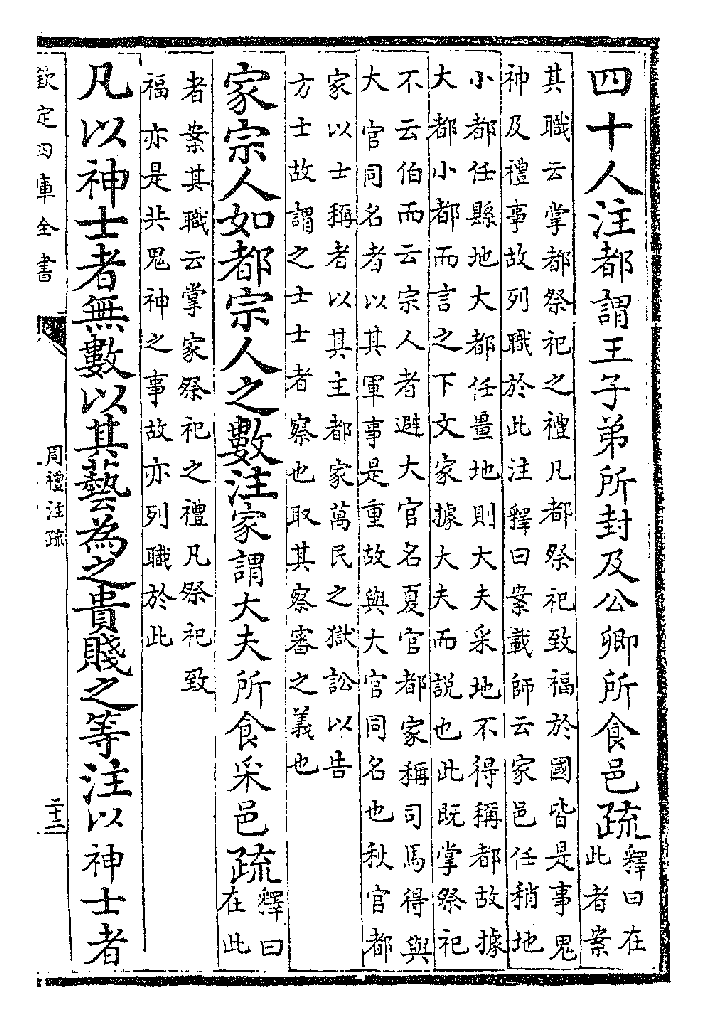 四十人注都謂王子弟所封及公卿所食邑疏釋曰在
此者案
其職云掌都祭祀之禮凡都祭祀致福於國皆是事鬼
神及禮事故列職於此注釋曰案載師云家邑任稍地
小都任縣地大都任畺地則大夫采地不得稱都故據
大都小都而言之下文家據大夫而說也此既掌祭祀
不云伯而云宗人者避大官名夏官都家稱司馬得與
大官同名者以其軍事是重故與大官同名也秋官都
家以士稱者以其主都家萬民之獄訟以告
方士故謂之士士者察也取其察審之義也
家宗人如都宗人之數注家謂大夫所食采邑疏釋曰
在此
者案其職云掌家祭祀之禮凡祭祀致
福亦是共鬼神之事故亦列職於此
凡以神士者無數以其藝為之貴賤之等注以神士者
欽定四庫全書
周禮注疏
二十二